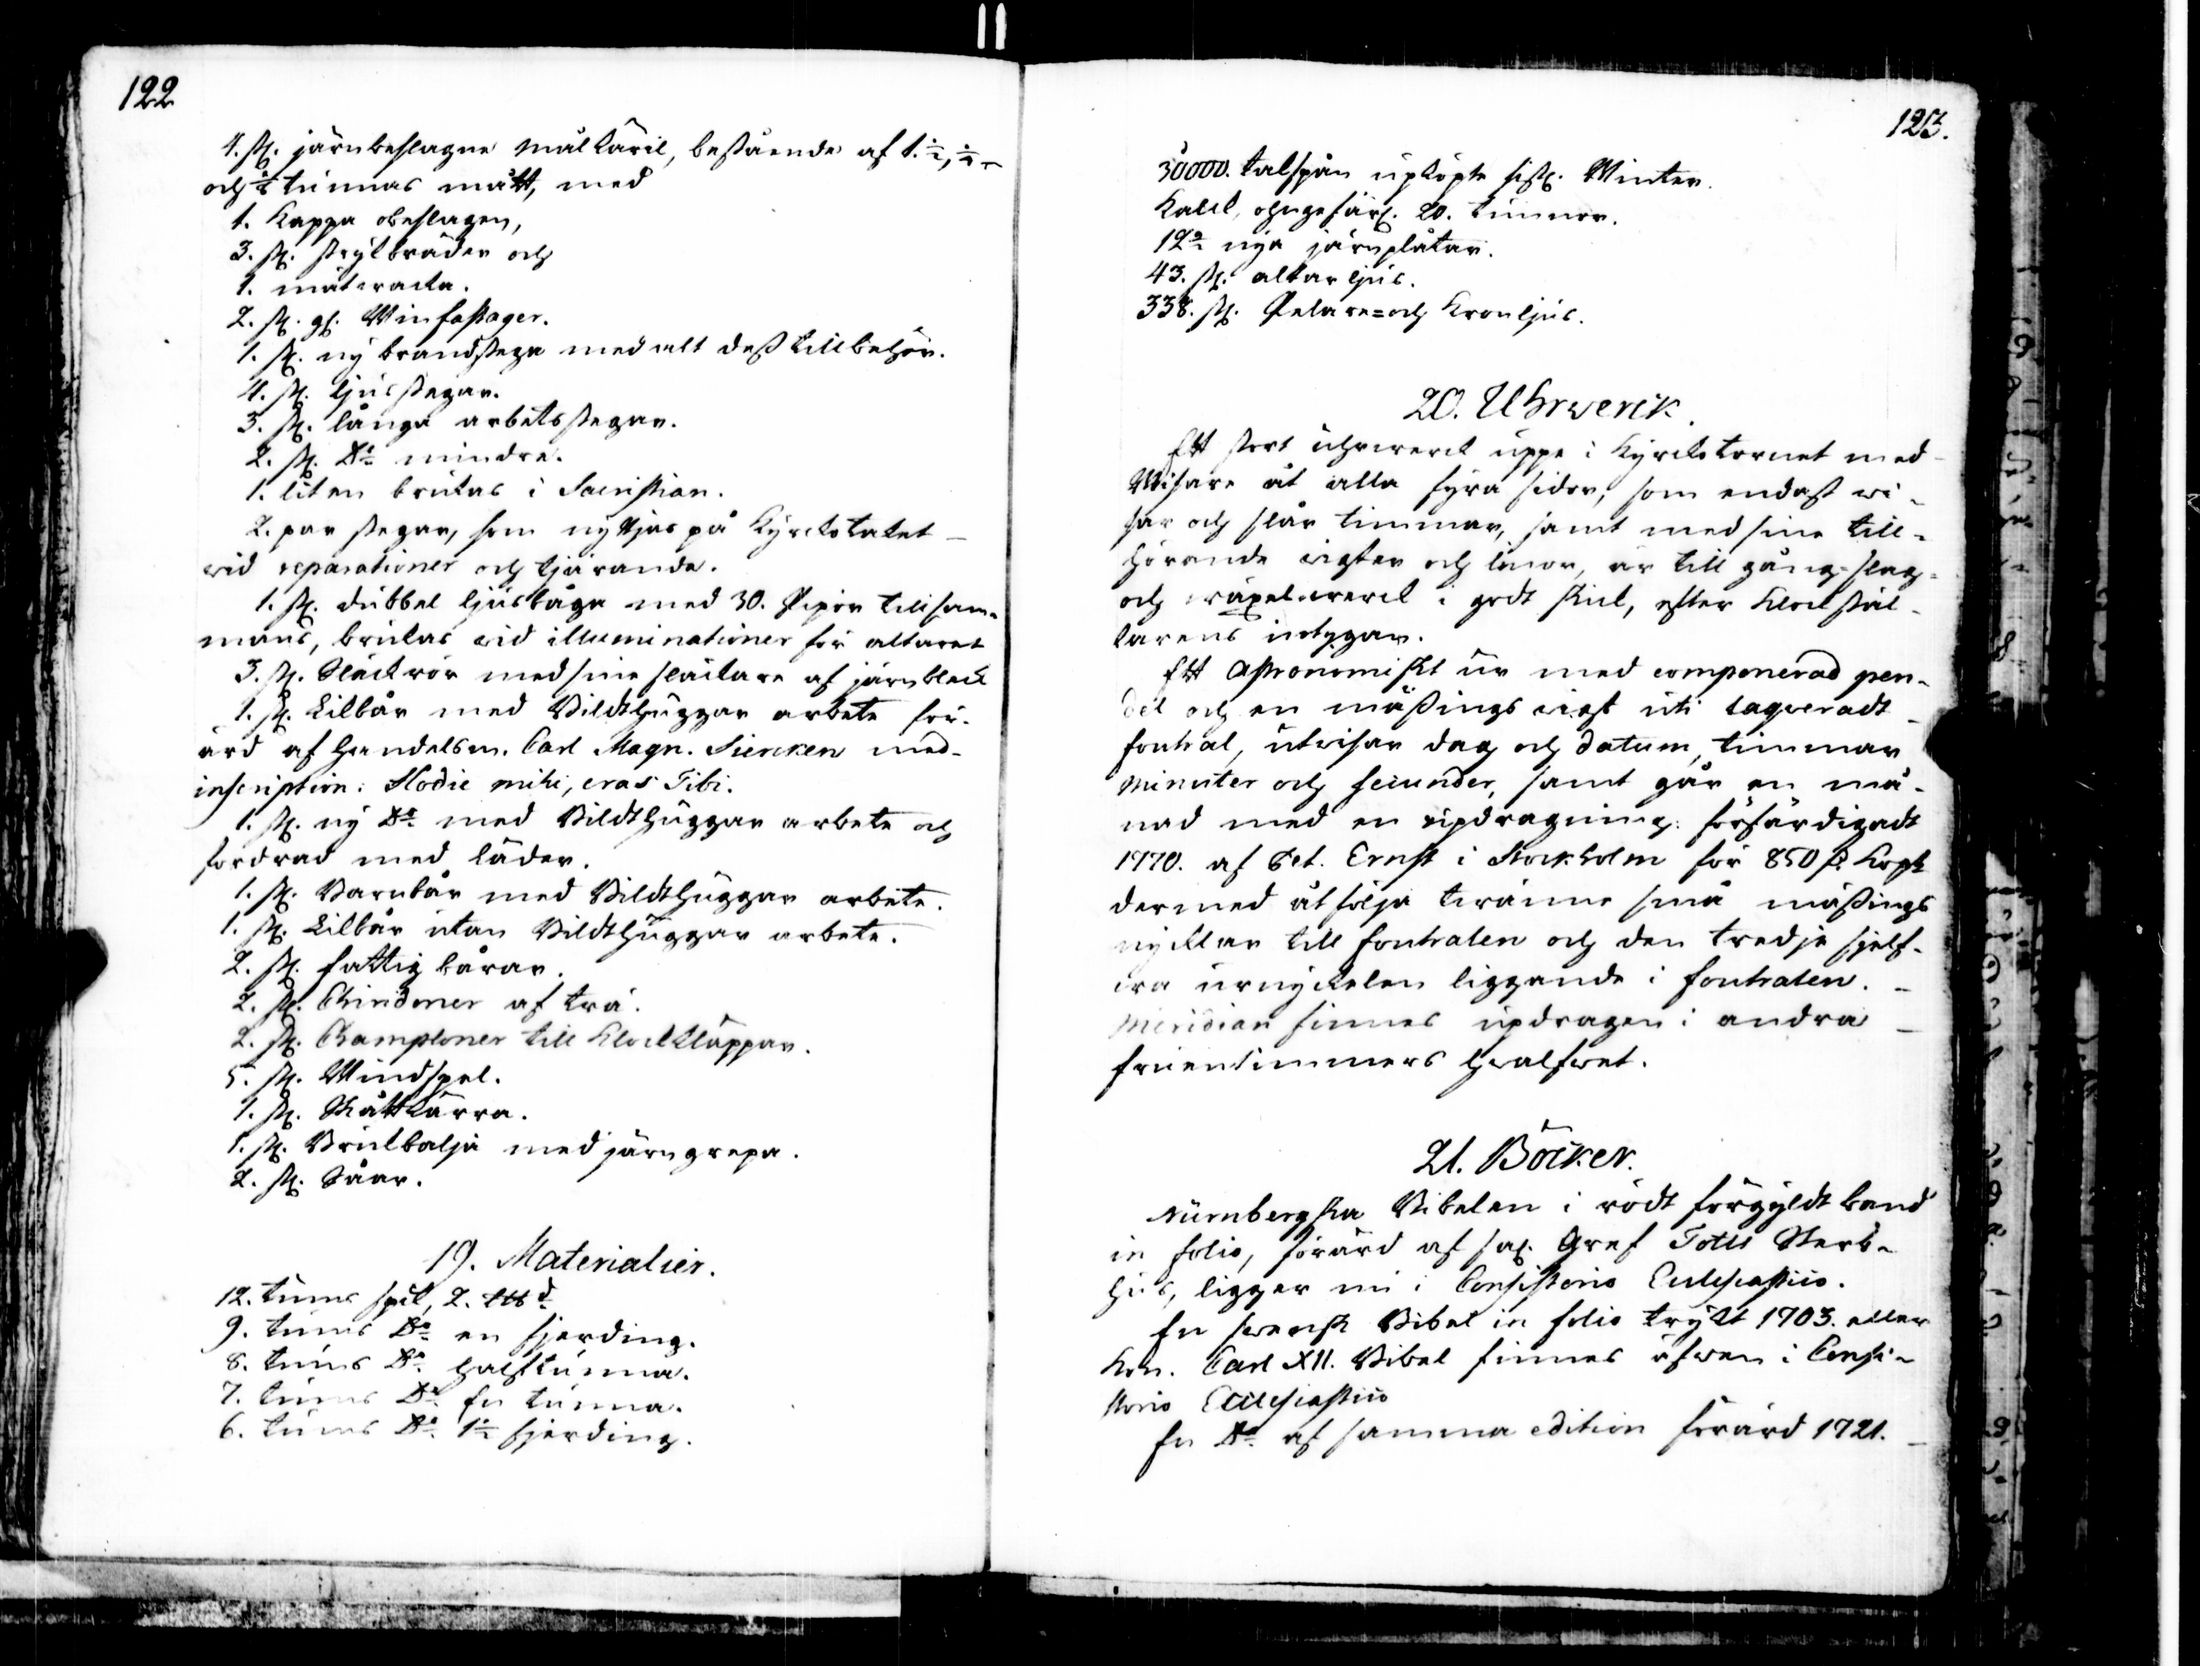 122
4. st. järnbeslagne mål käril, bestående af 1. ½, ¼ -
och ⅛ tunnas mått, med
1. Kappa obeslagen,
3. st. strykbräder och
1. mätracka.
2. st. gl. Winfastager.
1. st. ny brandstege med alt dess tillbehör.
4. st. ljusstegar.
3. st. långa arbetsstegar.
2. st. Do mindre.
1. liten brukas i Sacristian.
2. par stegar, som nyttjas på Kyrckotaket -
wid reparationer och tjärande.
1. st. dubbel ljusbåge med 30. Pipor tillsam-
mans, brukas wid illuminationer för altaret
3. st. Släckrör med sine släckare af järnbleck
1. st. Likbår med Bildthuggar arbete för-
ärd af Handelsm. Carl Magn. Siencken med-
inscription: Hodie mihi, cras Tibi.
1. st. ny Do med Bildthuggar arbete och
fordrad med läder.
1. st. Barnbår med Bildthuggar arbete.
1. st. Likbår utan Bildthuggar arbete.
2. st. fattig bårar.
2. st. Chindoner af trä.
2. st. Champloner till Klockkläppar.
5. st. Windspel.
1. st. Skottkärra.
1. st. Brukbalja med järngrepa.
2. st. Såar.
19. Materialier.
12. tums spik, 2. ttt d.
9. tums Do en fjerding.
8. tums Do halftunna.
7. tums Do En tunna.
6. tums Do 1½ fjerding.
123.
30000. takspån upköpte sistl. Winter.
Kalck, ohngefärl. 20. tunnor.
12 nya järnplåtar.
43. st. altar ljus.
338. st. Pelare= och Kronljus.
20. Uhrwerck.
Ett stort uhrwerck uppe i Kyrckotornet med -
Wisare åt alla fyra sidor, som endast wi-
sar och slår timmar, samt med sine till-
hörande wigter och linor, är till gång- slag-
och wäxelwerck i godt skick, efter Klockstäl-
larens intygan.
Ett Astronomiskt ur med componerad pen-
del och en mässings wigt uti laqveradt -
foutral, utwisar dag och datum, timmar
minuter och secunder, samt går en må-
nad med en updragning. förfärdigadt
1770. af Pet. Ernst i Stockholm för 850 D. Kopt
dermed åtfölja twänne små mässings
nycklar till foutralen och den tredje sjelf-
wa urnyckelen liggande i foutralen. -
Meridian finnes updragen i andra -
fruentimmers hwalfwet.
21. Böcker.
Nürnbergska Bibelen i rödt förgyldt band
in folio, förärd af sal. Gref Totts Sterb-
hus, ligger nu i Consistorio Ecclesiastico.
En swensk Bibel in folio tryckt 1703. eller
Kon. Carl XII. Bibel finnes äfwen i Consi-
storio Ecclesiastico
En Do af samma edition förärd 1721. -